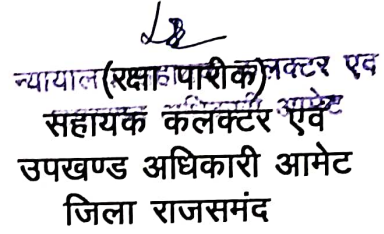 न्यायाल (रक्षा पारीक) लक्टर एव
सहायक कलक्टर एवं
उपखण्ड अधिकारी आमेट
जिला राजसमंद